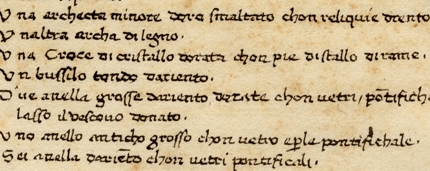 Vna archecta minore doro smaltato chon reliquie drento
Vnaltra archa di legno.
Vna Croce di cristallo dorata chon pie distallo dirame.
Vn bussilo tondo dariento.
Due anella grosse dariento dorate chon uetri, põtifich
lasso il uescouo donato.
Vno anello anticho grosso chon uetro eperle pontifichale.
Sei anella dariẽto chon uetri pontificali.